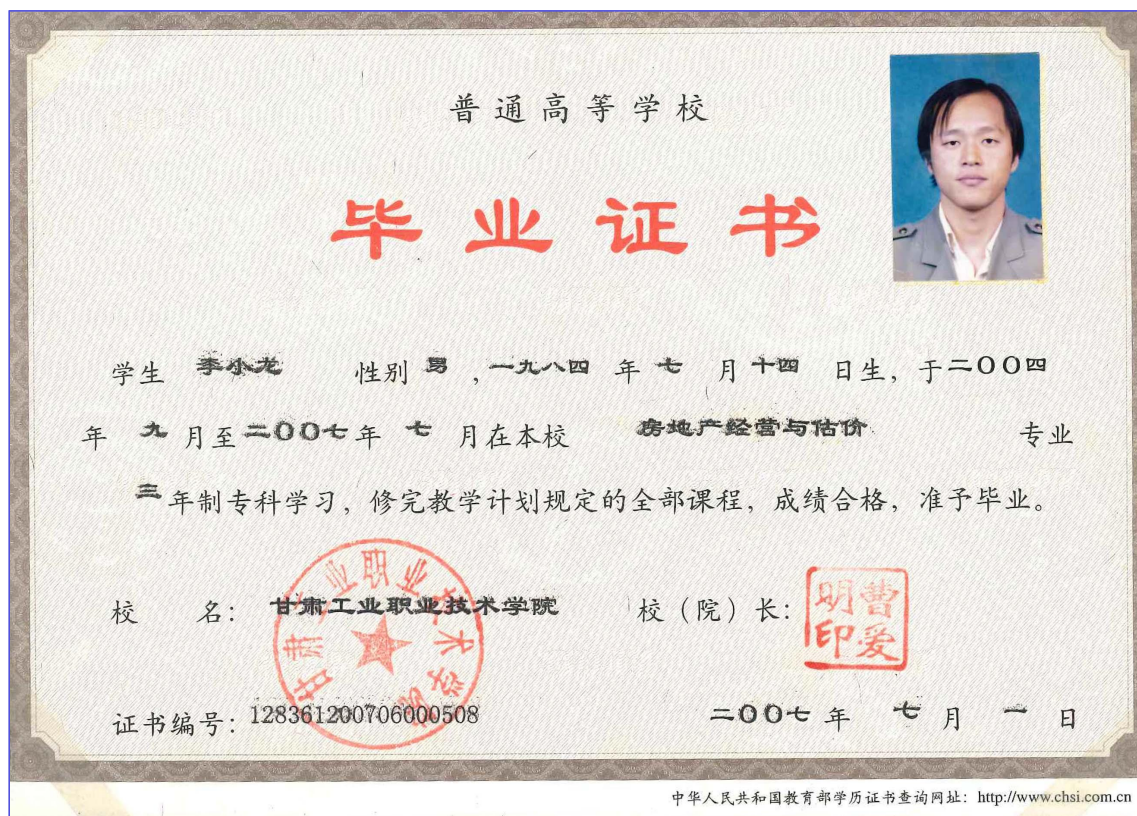 普通高等学校
毕业证书
学生 李小龙 性别 男 ,一九八四 年 七 月 十四 日生, 于二〇〇四
年 九 月至二〇〇七年 七 月在本校 房地产经营与估价 专业
三年制专科学习, 修完教学计划规定的全部课程, 成绩合格, 准予毕业。
校 名: 甘肃工业职业技术学院 校（院）长: 曹爱明印
甘肃工业职业技术学院
证书编号: 128361200706000508 二〇〇七 年 七 月 一 日
中华人民共和国教育部学历证书查询网址: http://www.chsi.com.cn